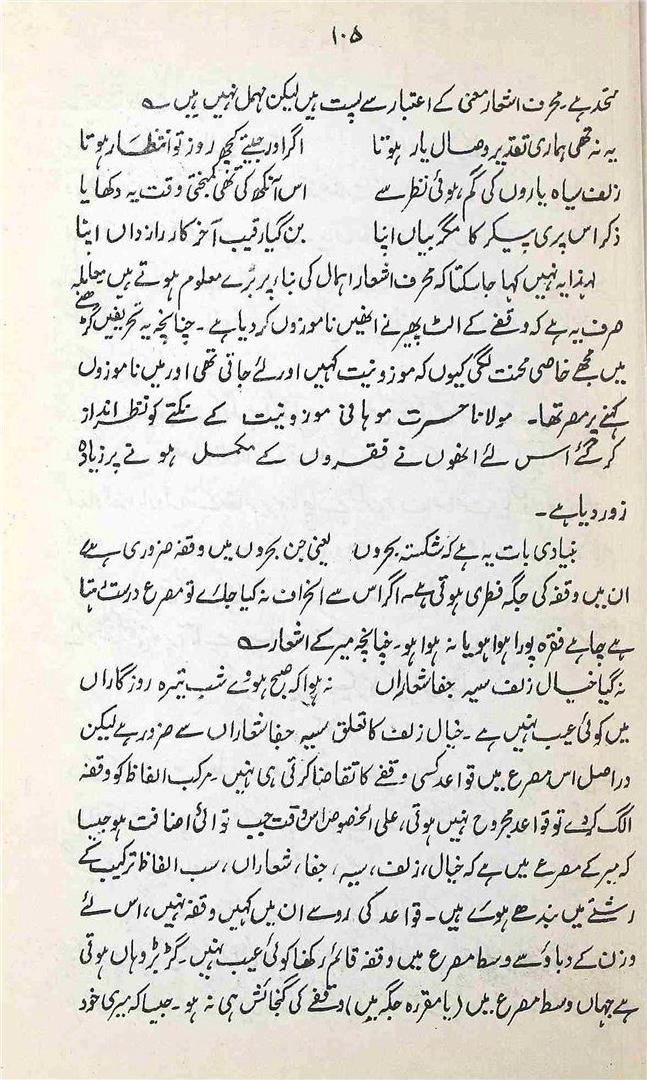 ۱۰۵
متحد ہے۔ محرف اشعار معنی کے اعتبار سے پست ہیں لیکن مہمل نہیں ہیں ؎
یہ نہ تھی ہماری تقدیر وصال یار ہوتا اگر اور جیتے کچھ روز تو انتظار ہوتا
زلف سیاہ یاروں کی گم ہوئی نظر سے اس آنکھ کی تھی کمبختی وقت یہ دکھایا
ذکر اس پری پیکر کا مگر بیاں اپنا بن گیا رقیب آخر کار رازداں اپنا
لہٰذا یہ نہیں کہا جا سکتا کہ محرف اشعار اہمال کی بناء پر بُرے معلوم ہوتے ہیں معاملہ
صرف یہ ہے کہ وقفے کے الٹ پھیر نے انھیں ناموزوں کر دیا ہے۔ چنانچہ یہ تحریفیں گڑھنے
میں مجھے خاصی محنت لگی کیوں کہ موزونیت کہیں اور لئے جاتی تھی اور میں ناموزوں
کہنے پر مصر تھا۔ مولانا حسرت موہانی موزونیت کے نکتے کو نظر انداز
کر گئے اس لئے انھوں نے فقروں کے مکمل ہونے پر زیادہ
زور دیا ہے۔
بنیادی بات یہ ہے کہ شکستہ بحروں یعنی جن بحروں میں وقفہ ضروری ہے
ان میں وقفہ کی جگہ فطری ہوتی ہے۔ اگر اس سے انحراف نہ کیا جائے تو مصرع درست رہتا
ہے چاہے فقرہ پورا ہوا ہو یا نہ ہوا ہو۔ چنانچہ میر کے اشعار ؎
نہ گیا خیال زلف سیہ جفا شعاراں نہ ہوا کہ صبح ہووے شب تیرہ روزگاراں
میں کوئی عیب نہیں ہے۔ خیال زلف کا تعلق سیہ جفا شعاراں سے ضرور ہے لیکن
دراصل اس مصرع میں قواعد کسی وقفے کا تقاضا کرتی ہی نہیں۔ مرکب الفاظ کو وقفہ
الگ کر دے تو قواعد مجروح نہیں ہوتی، علی الخصوص اس وقت جب توالئ اضافت ہو جیسا
کہ میر کے مصرعے میں ہے کہ خیال، زلف، سیہ، جفا، شعاراں، سب الفاظ ترکیب کے
رشتے میں بندھے ہوئے ہیں۔ قواعد کی رو سے ان میں کہیں وقفہ نہیں، اس لئے
وزن کے دباؤ سے وسط مصرع میں وقفہ قائم رکھنا کوئی عیب نہیں۔ گڑبڑ وہاں ہوتی
ہے جہاں وسط مصرع میں (یا مقررہ جگہ میں) وقفے کی گنجائش ہی نہ ہو۔ جیسا کہ میری خود